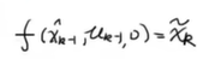 f(x̂ₖ₋₁, uₖ₋₁, 0) = x̃ₖ